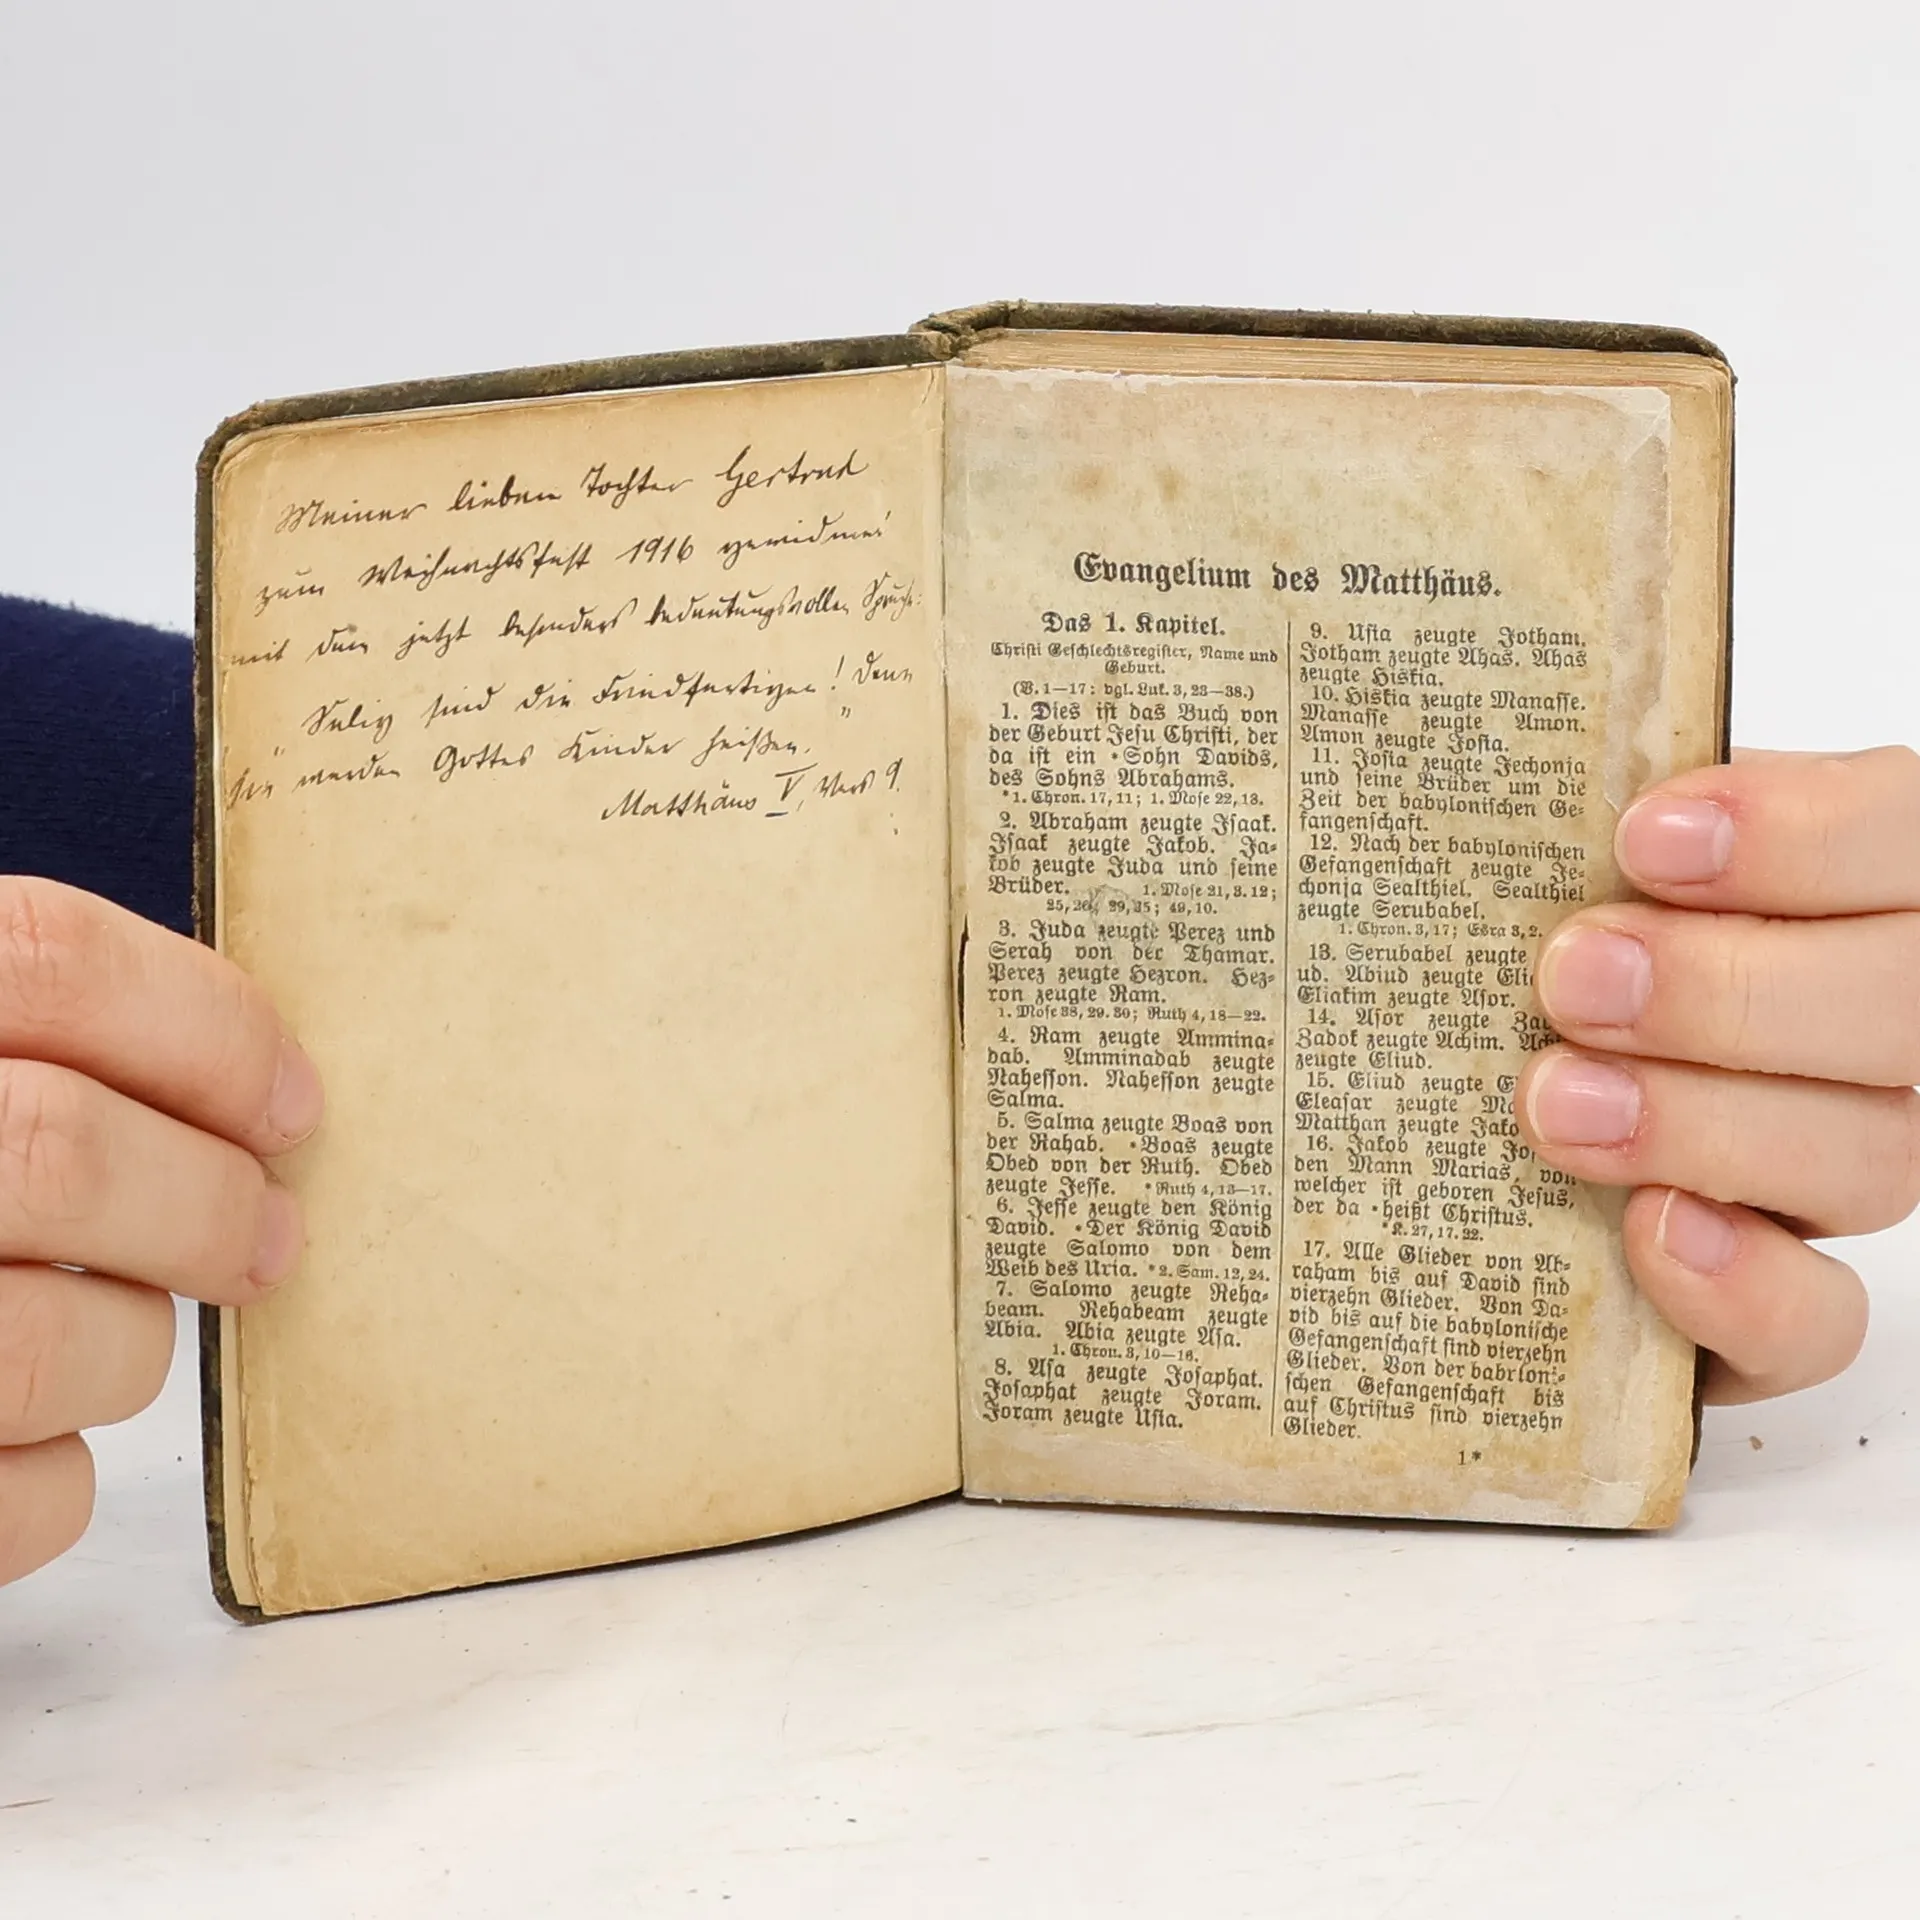 Meiner lieben Tochter Gertrud
zum Weihnachtsfest 1916 gewidmet
mit dem jetzt besonders bedeutungsvollen Spruche:
„Selig sind die Friedfertigen! Denn
sie werden Gottes Kinder heißen."
Matthäus V, Vers 9.
Evangelium des Matthäus.
Das 1. Kapitel.
Christi Geschlechtsregister, Name und
Geburt.
(V. 1—17: vgl. Luk. 3, 23—38.)
1. Dies ist das Buch von
der Geburt Jesu Christi, der
da ist ein *Sohn Davids,
des Sohns Abrahams.
*1. Chron. 17, 11; 1. Mose 22, 18.
2. Abraham zeugte Isaak.
Isaak zeugte Jakob. Ja-
kob zeugte Juda und seine
Brüder. 1. Mose 21, 3. 12;
25, 26; 29, 35; 49, 10.
3. Juda zeugte Perez und
Serah von der Thamar.
Perez zeugte Hezron. Hez-
ron zeugte Ram.
1. Mose 38, 29. 30; Ruth 4, 18—22.
4. Ram zeugte Ammina-
dab. Amminadab zeugte
Nahesson. Nahesson zeugte
Salma.
5. Salma zeugte Boas von
der Rahab. *Boas zeugte
Obed von der Ruth. Obed
zeugte Jesse. *Ruth 4, 13—17.
6. Jesse zeugte den König
David. *Der König David
zeugte Salomo von dem
Weib des Uria. *2. Sam. 12, 24.
7. Salomo zeugte Reha-
beam. Rehabeam zeugte
Abia. Abia zeugte Asa.
1. Chron. 3, 10—16.
8. Asa zeugte Josaphat.
Josaphat zeugte Joram.
Joram zeugte Usia.
9. Usia zeugte Jotham.
Jotham zeugte Ahas. Ahas
zeugte Hiskia.
10. Hiskia zeugte Manasse.
Manasse zeugte Amon.
Amon zeugte Josia.
11. Josia zeugte Jechonja
und seine Brüder um die
Zeit der babylonischen Ge-
fangenschaft.
12. Nach der babylonischen
Gefangenschaft zeugte Je-
chonja Sealthiel. Sealthiel
zeugte Serubabel.
1. Chron. 3, 17; Esra 3, 2.
13. Serubabel zeugte
ud. Abiud zeugte Elia
Eliakim zeugte Asor.
14. Asor zeugte Zad
Zadok zeugte Achim. Achi
zeugte Eliud.
15. Eliud zeugte E
Eleasar zeugte Ma
Matthan zeugte Jako
16. Jakob zeugte Jos
den Mann Marias, von
welcher ist geboren Jesus,
der da *heißt Christus.
*K. 27, 17. 22.
17. Alle Glieder von Ab-
raham bis auf David sind
vierzehn Glieder. Von Da-
vid bis auf die babylonische
Gefangenschaft sind vierzehn
Glieder. Von der babyloni-
schen Gefangenschaft bis
auf Christus sind vierzehn
Glieder.
1*